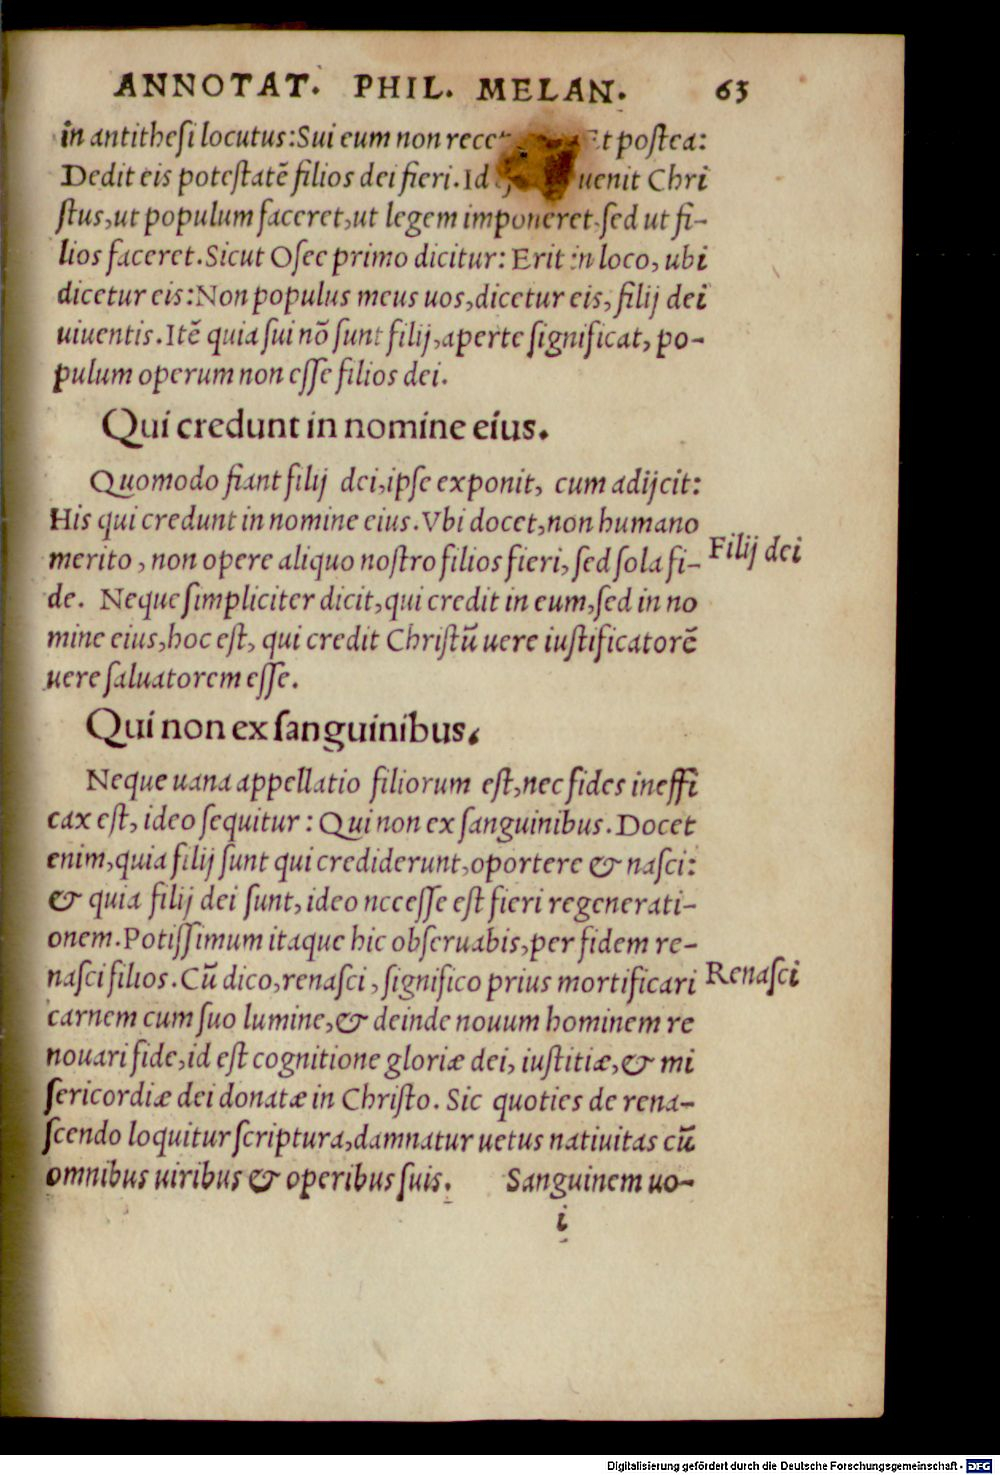 ANNOTAT. PHIL. MELAN. 65
in antithesi locutus:Sui eum non Et postea:
Dedit eis potestatẽ filios dei fieri.Id uenit Chri
stus,ut populum faceret,ut legem imponeret,sed ut fi-
lios faceret.Sicut Osee primo dicitur: Erit in loco, ubi
dicetur eis:Non populus meus uos,dicetur eis, filij dei
uiuentis.Itẽ quia sui nõ sunt filij,aperte significat, po-
pulum operum non esse filios dei.
Qui credunt in nomine eius.
Quomodo fiant filij dei,ipse exponit, cum adijcit:
His qui credunt in nomine eius.Vbi docet,non humano
merito, non opere aliquo nostro filios fieri, sed sola fi-
Filij dei
de. Neque simpliciter dicit,qui credit in eum,sed in no
mine eius,hoc est, qui credit Christũ uere iustificatorẽ
uere saluatorem esse.
Qui non ex sanguinibus.
Neque uana appellatio filiorum est,nec fides ineffi
cax est, ideo sequitur: Qui non ex sanguinibus.Docet
enim,quia filij sunt qui crediderunt,oportere & nasci:
& quia filij dei sunt, ideo necesse est fieri regenerati-
onem.Potissimum itaque hic obseruabis,per fidem re-
nasci filios.Cũ dico,renasci, significo prius mortificari
Renasci
carnem cum suo lumine,& deinde nouum hominem re
nouari fide,id est cognitione gloriæ dei, iustitiæ,& mi
sericordiæ dei donatæ in Christo. Sic quoties de rena-
scendo loquitur scriptura,damnatur uetus natiuitas cũ
omnibus uiribus & operibus suis. Sanguinem uo-
i
Digitalisierung gefördert durch die Deutsche Forschungsgemeinschaft - DFG